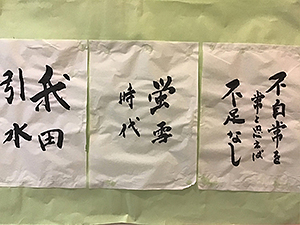 不自常を
常と思えば
不足なし
螢雪
時代
我田
引水